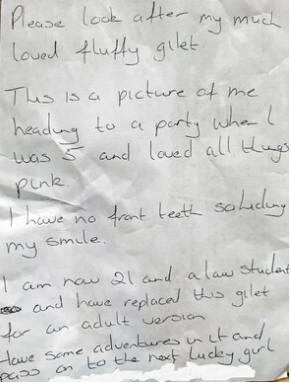 Please look after my much
loved fluffy gilet
This is a picture of me
heading to a party when I
was 5 and loved all things
pink.
I have no front teeth so hiding
my smile.
I am now 21 and a law student
and have replaced this gilet
for an adult version
Have some adventures in it and
pass on to the next lucky girl